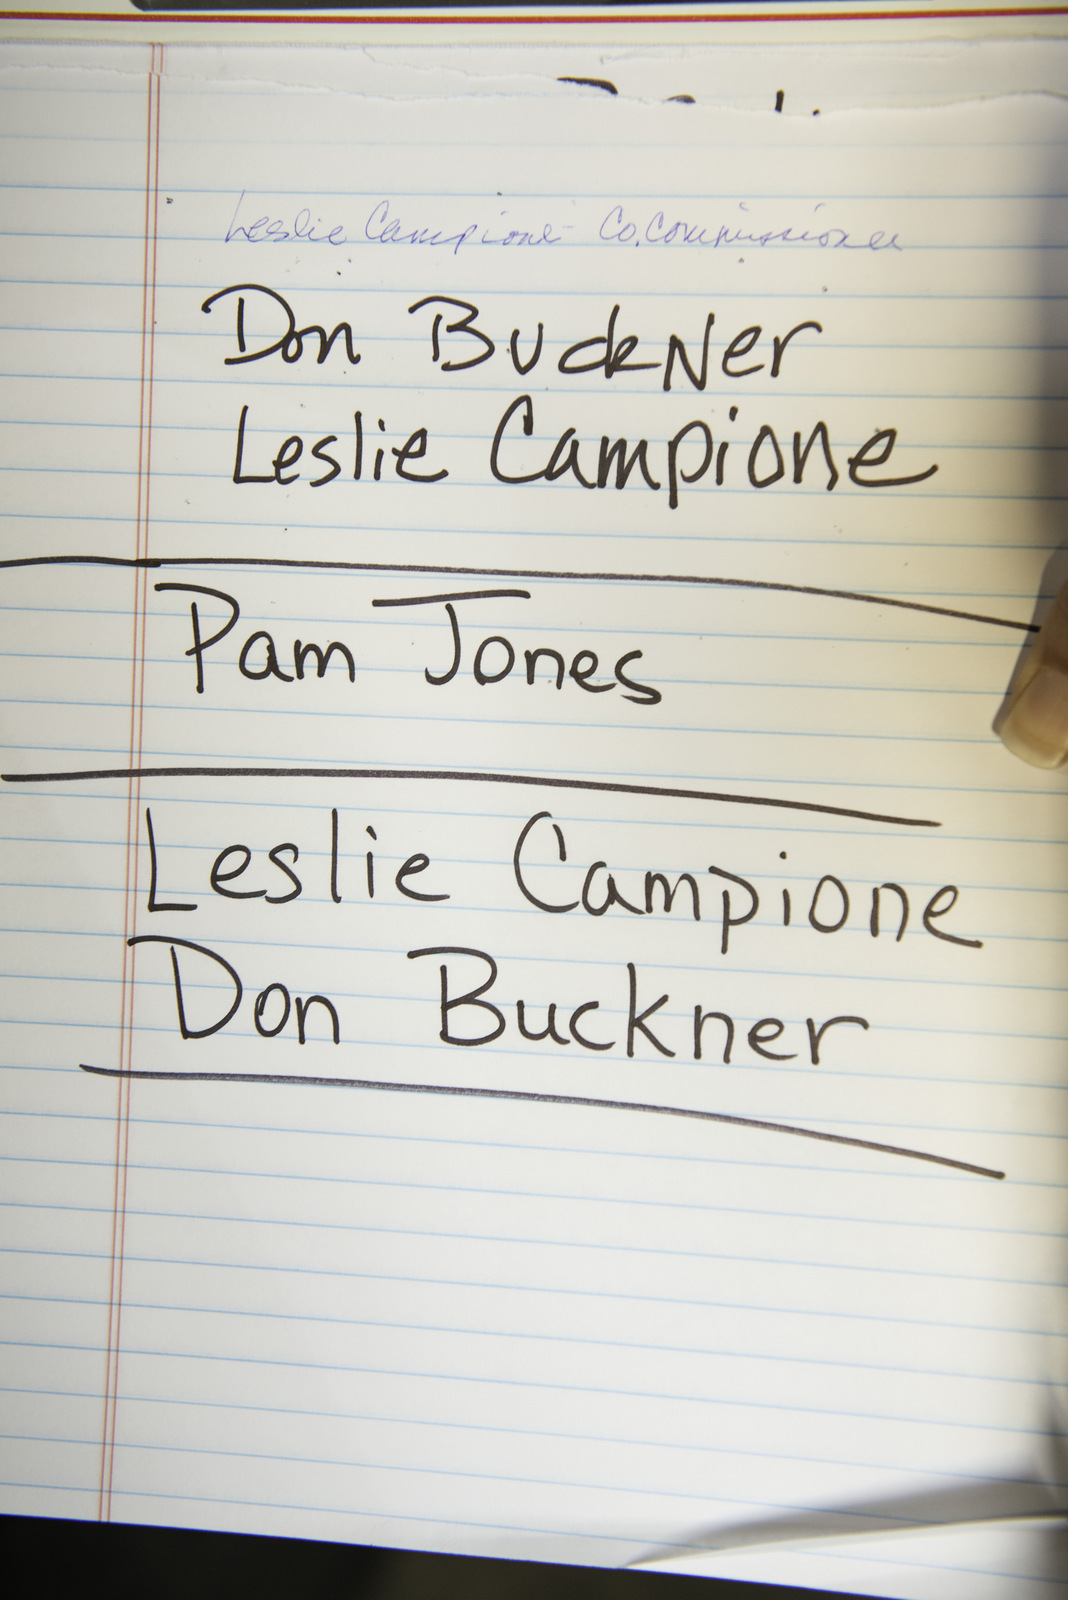 Leslie Campione - Co. Commissioner
Don Buckner
Leslie Campione
Pam Jones
Leslie Campione
Don Buckner